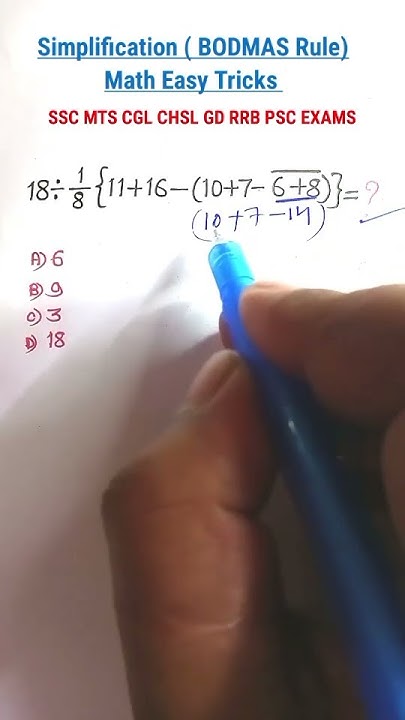 Simplification ( BODMAS Rule)
Math Easy Tricks
SSC MTS CGL CHSL GD RRB PSC EXAMS
18÷1/8{11+16−(10+7−6+8)}=?
(10+7−14)
A) 6
B) 9
C) 3
D) 18